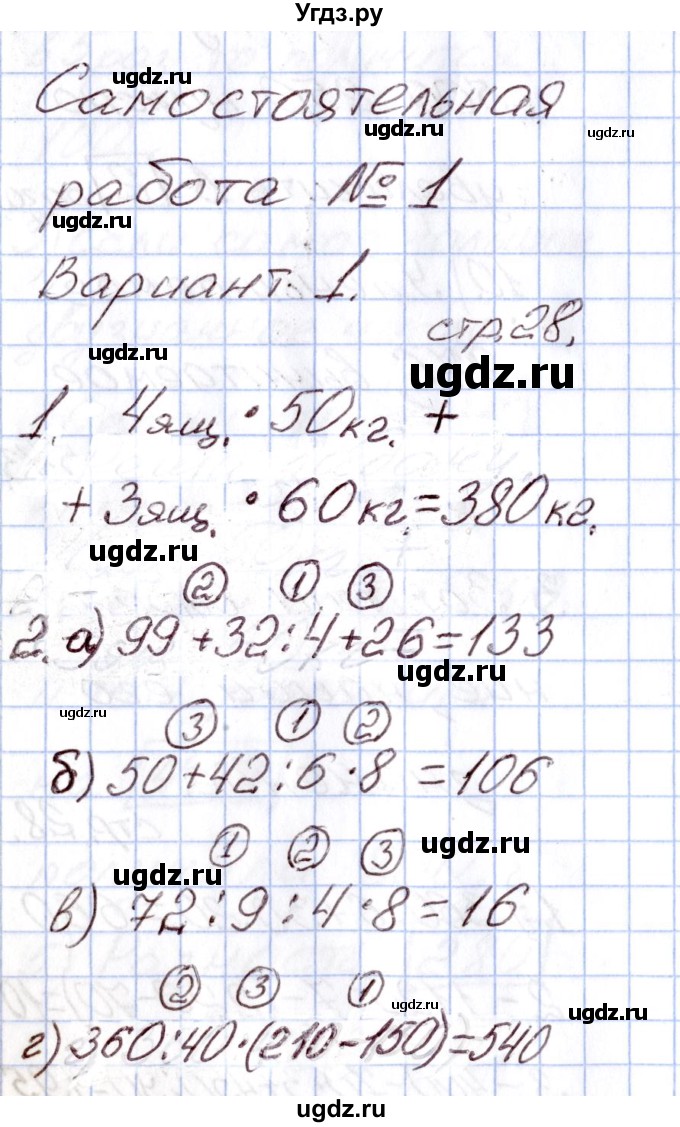 Угдз.ру
Самостоятельная
работа № 1
Вариант 1.
стр. 28.
1. 4 ящ. · 50 кг. +
+ 3 ящ. · 60 кг. = 380 кг.
② ① ③
2. а) 99 + 32 : 4 + 26 = 133
③ ① ②
б) 50 + 42 : 6 · 8 = 106
① ② ③
в) 72 : 9 : 4 · 8 = 16
② ③ ①
г) 360 : 40 · (210 - 150) = 540
ugdz.ru
ugdz.ru
ugdz.ru
ugdz.ru
ugdz.ru
ugdz.ru
ugdz.ru
ugdz.ru
ugdz.ru
ugdz.ru
ugdz.ru
ugdz.ru
ugdz.ru
ugdz.ru